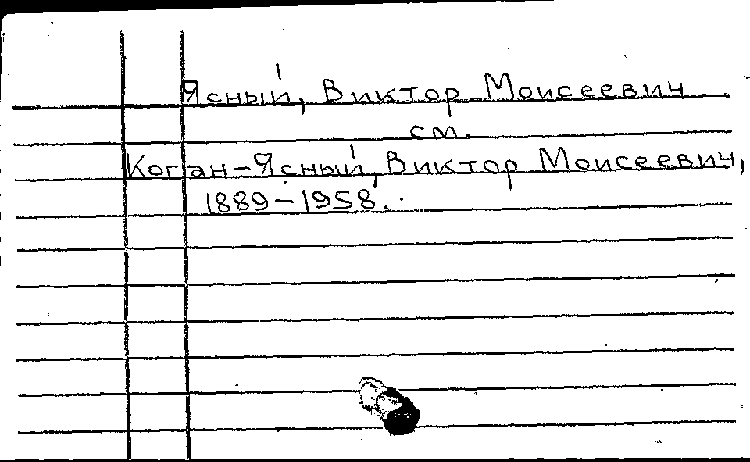 Ясный, Виктор Моисеевич
см.
Коган-Ясный, Виктор Моисеевич,
1889-1958.